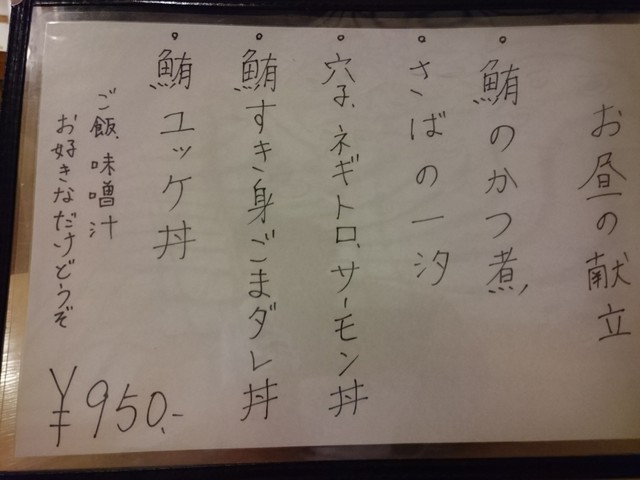 お昼の献立
鮪のかつ煮
さばの一汐
穴子、ネギトロ、サーモン丼
鮪すき身ごまダレ丼
鮪ユッケ丼
ご飯、味噌汁
お好きなだけどうぞ
¥950.-